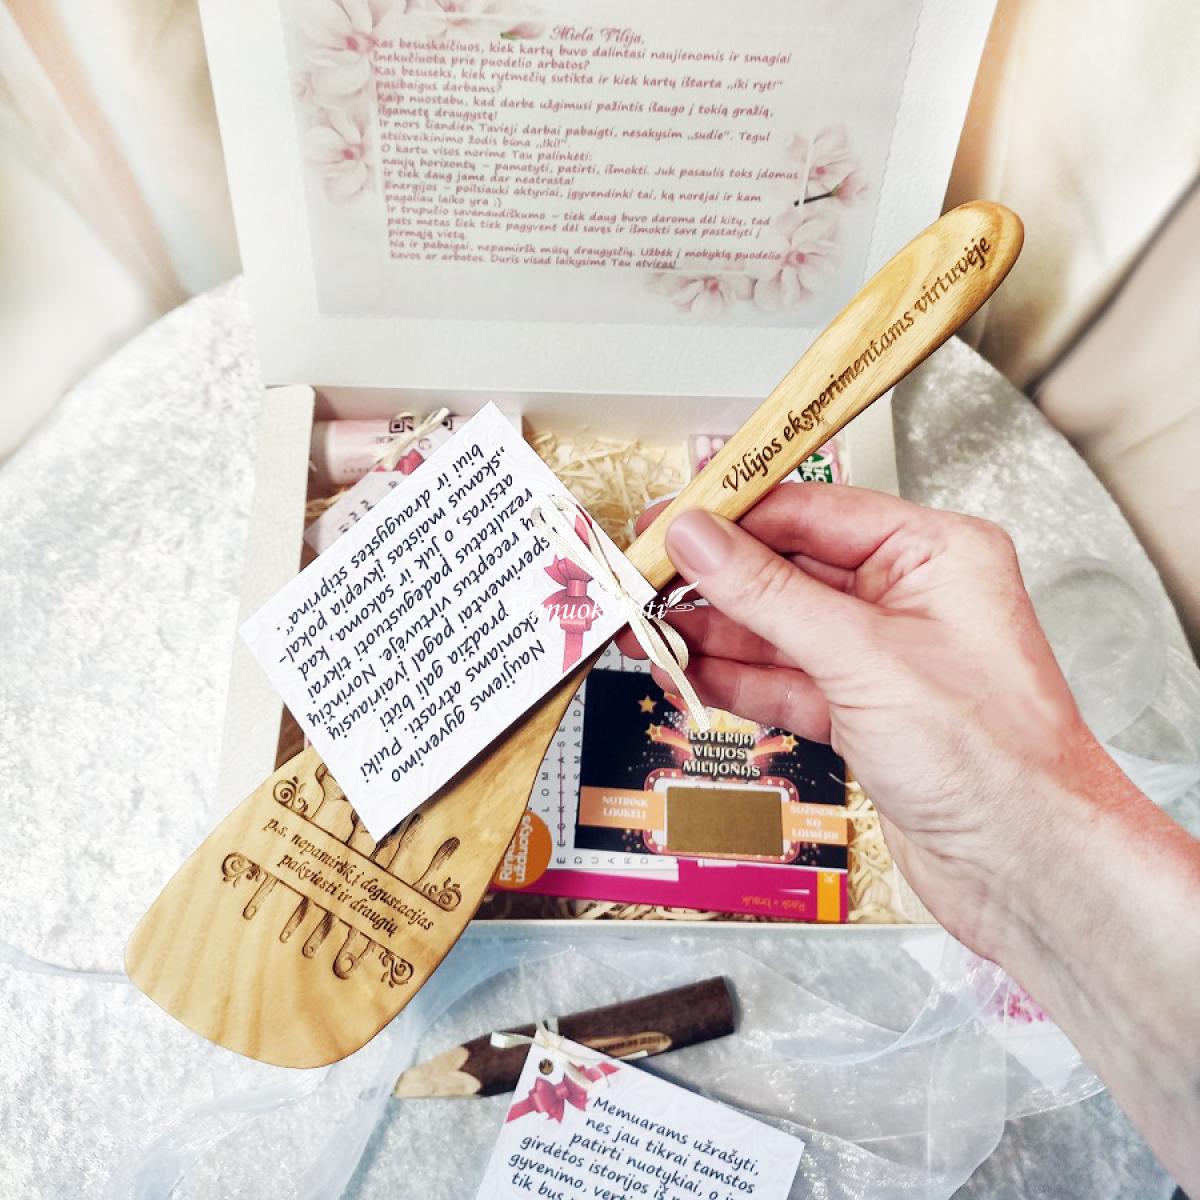 Miela Vilija,
Kas besuskaičiuos, kiek kartų buvo dalintasi naujienomis ir smagiai
šnekučiuota prie puodelio arbatos?
Kas besuseks, kiek rytmečių sutikta ir kiek kartų ištarta „iki ryt!“
pasibaigus darbams?
Kaip nuostabu, kad darbe užgimusi pažintis išaugo į tokią gražią,
ilgametę draugystę!
Ir nors šiandien Tavieji darbai pabaigti, nesakysim „sudie“. Tegul
atsisveikinimo žodis būna „Iki!“.
O kartu visos norime Tau palinkėti:
naujų horizontų – pamatyti, patirti, išmokti. Juk pasaulis toks įdomus
ir tiek daug jame dar neatrasta!
Energijos – poilsiauki aktyviai, įgyvendinki tai, ką norėjai ir kam
pagaliau laiko yra ;)
Ir trupučio savanaudiškumo – tiek daug buvo daroma dėl kitų, tad
pats metas šiek tiek pagyvent dėl savęs ir išmokti save pastatyti į
pirmąją vietą.
Na ir pabaigai, nepamiršk mūsų draugysčių. Užbėk į mokyklą puodelio
kavos ar arbatos. Duris visad laikysime Tau atviras!
Vilijos eksperimentams virtuvėje
Naujiems gyvenimo
skoniams atrasti. Puiki
pradžia gali būti
sperimentai pagal įvairiausių
ų receptus virtuvėje. Norinčių
rezultatus padegustuoti tikrai
atsiras, o juk ir sakoma, kad
„skanus maistas įkvepia pokal-
biui ir draugystes stiprina“.
p.s. nepamiršk į degustacijas
pakviesti ir draugių
LOTERIJA
VILIJOS
MILIJONAS
NUTRINK
LAUKELĮ
SUŽINOK
KĄ
LAIMĖJAI
užduotys
Rask ir brauk
Memuarams užrašyti,
nes jau tikrai tamstos
patirti nuotykiai, o
girdėtos istorijos iš
gyvenimo,
tik bus